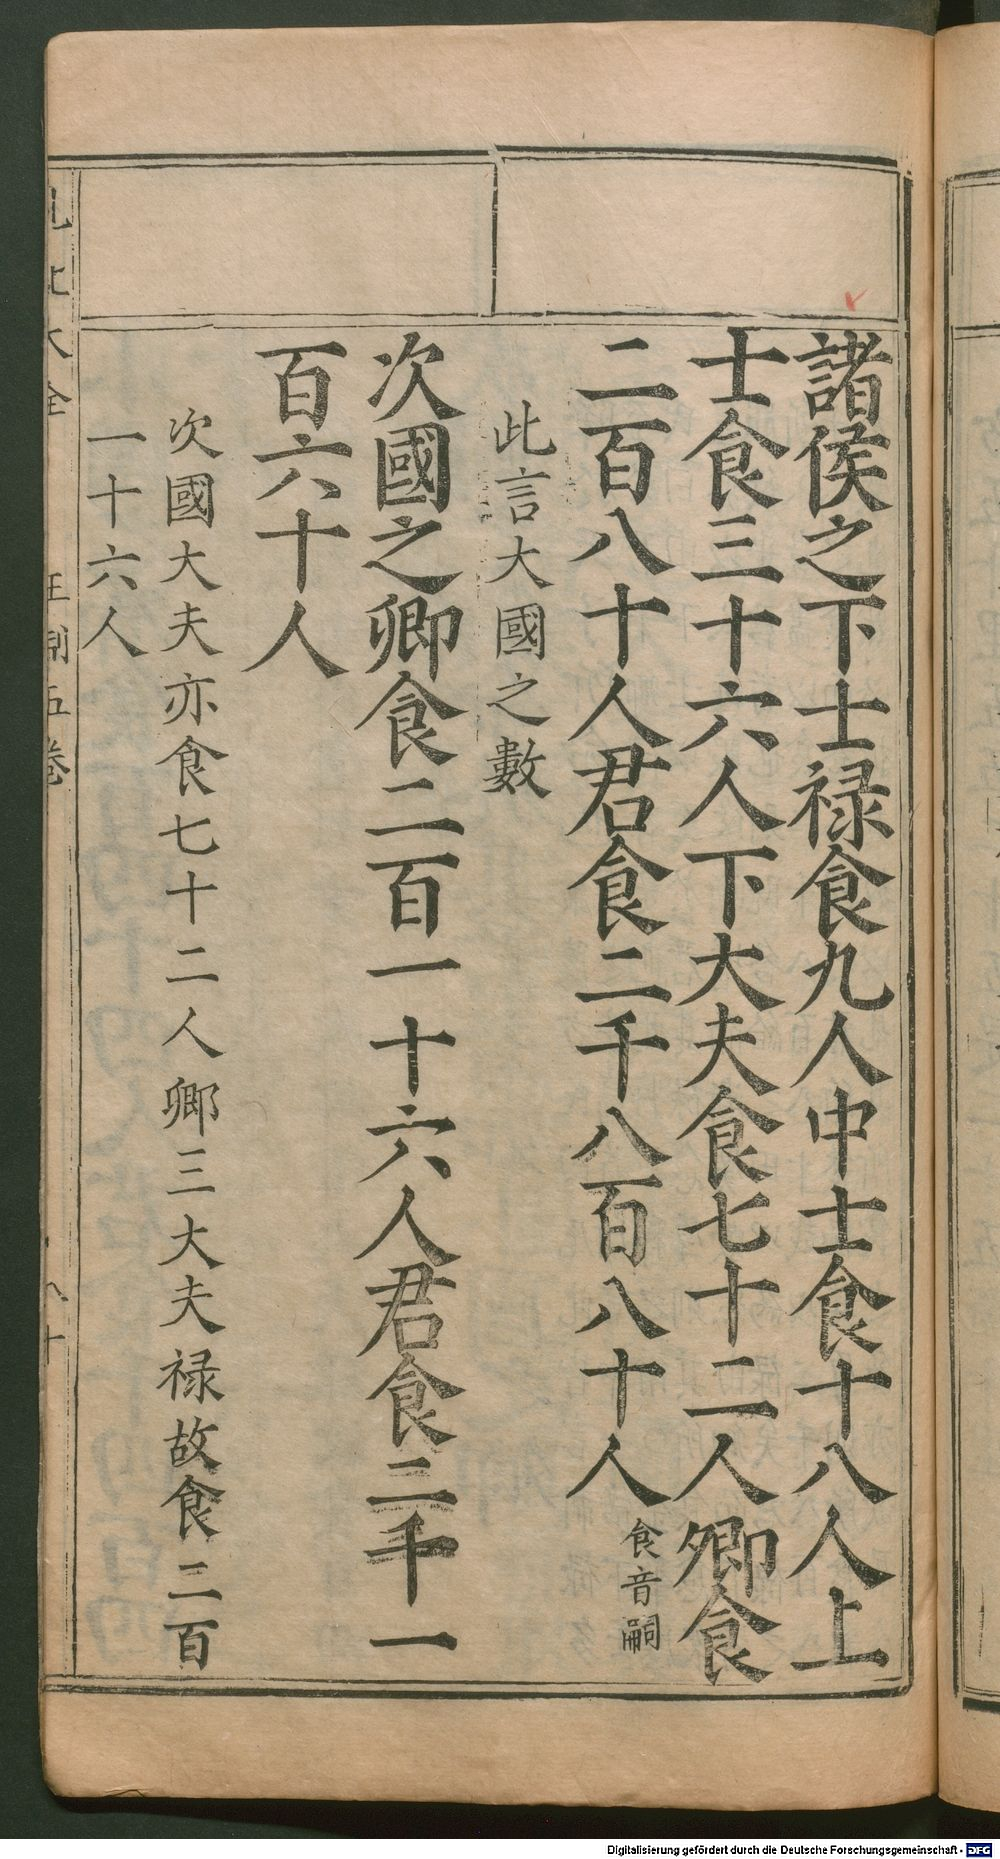 諸侯之下士祿食九人中士食十八人上
士食三十六人下大夫食七十二人卿食
二百八十人君食二千八百八十人
食音嗣
此言大國之數
次國之卿食二百一十六人君食二千一
百六十人
次國大夫亦食七十二人卿三大夫祿故食二百
一十六人
王制五卷
Digitalisierung gefördert durch die Deutsche Forschungsgemeinschaft - DFG